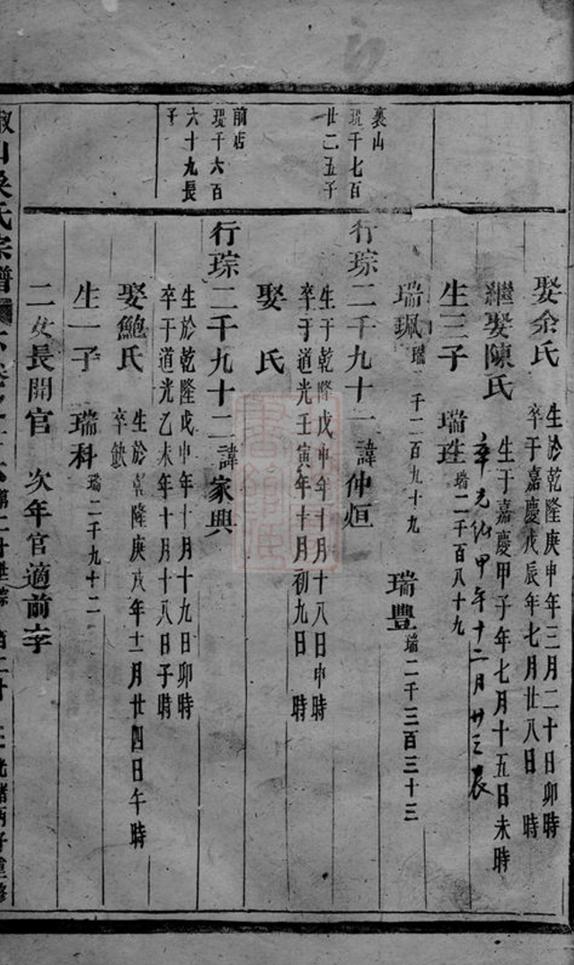 裏山
琮千七百
廿二五子
前店
琮千六百
六十九長
子
娶余氏
生於乾隆庚申年三月二十日卯時
卒于嘉慶戊辰年七月廿八日時
繼娶陳氏
生于嘉慶甲子年七月十五日未時
卒光緒甲年十二月廿三辰
生三子
瑞玨
瑞二千百八十九
瑞珮
瑞二千二百九十九
瑞豐
瑞二千三百三十三
行琮二千九十一
諱仲烜
生于乾隆戊申年十月十八日申時
卒于道光壬寅年十月初九日時
娶氏
行琮二千九十二
諱家興
生於乾隆戊申年十月十九日卯時
卒于道光乙未年十月十八日子時
娶鮑氏
生於乾隆庚戌年十一月廿四日午時
卒缺
生一子
瑞科
瑞二千九十二
二女長開官
次年官適前
氏宗譜
光緒丙子重修